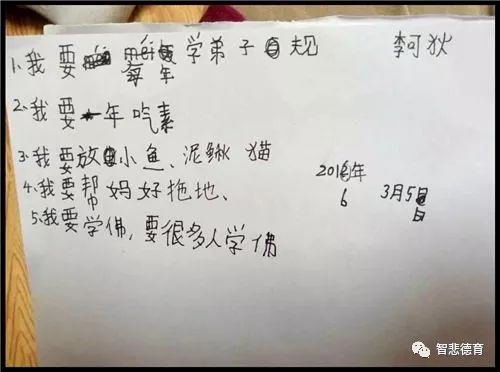 1.我要 每年 学弟子规 李可狄
2.我要一年吃素
3.我要放小鱼、泥鳅 猫
4.我要帮妈好拖地、
2016年 3月5日
5.我要学佛,要很多人学佛
智悲德育